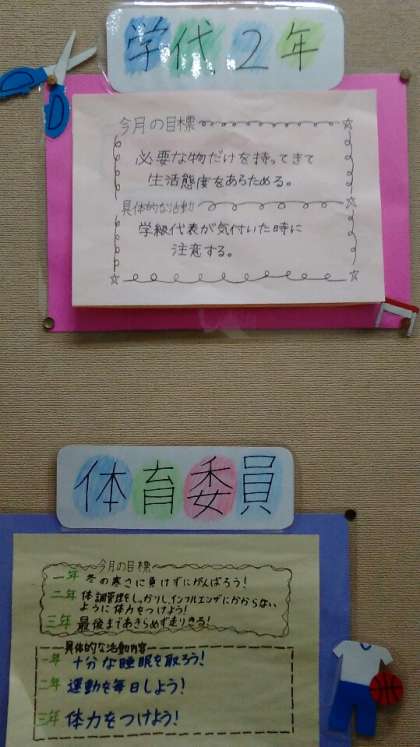 学代2年
今月の目標
必要な物だけを持ってきて
生活態度をあらためる。
具体的な活動
学級代表が気付いた時に
注意する。
体育委員
今月の目標
一年 冬の寒さに負けずにがんばろう!
二年 体調管理をしっかりしインフルエンザにかからない
ように体力をつけよう!
三年 最後まであきらめず走りきる!
具体的な活動内容
一年 十分な睡眠を取ろう!
二年 運動を毎日しよう!
三年 体力をつけよう!